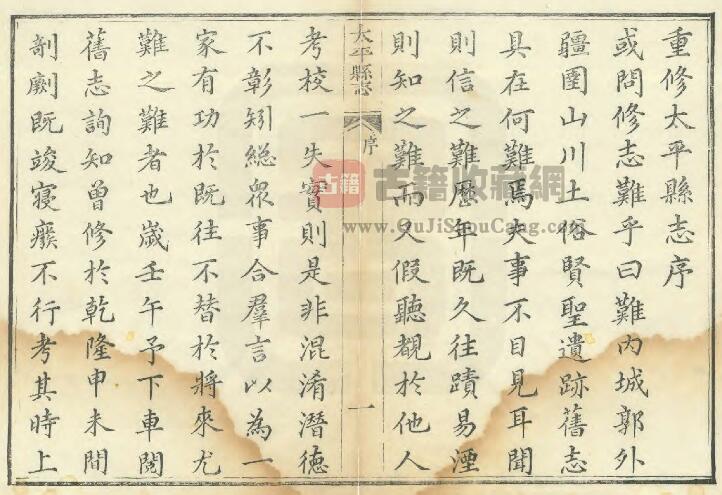 重修太平縣志序
或問修志難乎曰難內城郭外
疆圉山川土俗賢聖遺跡舊志
具在何難焉夫事不目見耳聞
則信之難歷年既久往蹟易湮
則知之難而又假聽覩於他人
太平縣志
序
一
考校一失實則是非混淆潛德
不彰矧總眾事合羣言以為一
家有功於既往不替於將來尤
難之難者也歲壬午予下車閱
舊志詢知曾修於乾隆申未間
剞劂既竣寢癈不行考其時上
古籍
古籍收藏網
www.GuJiShouCang.com